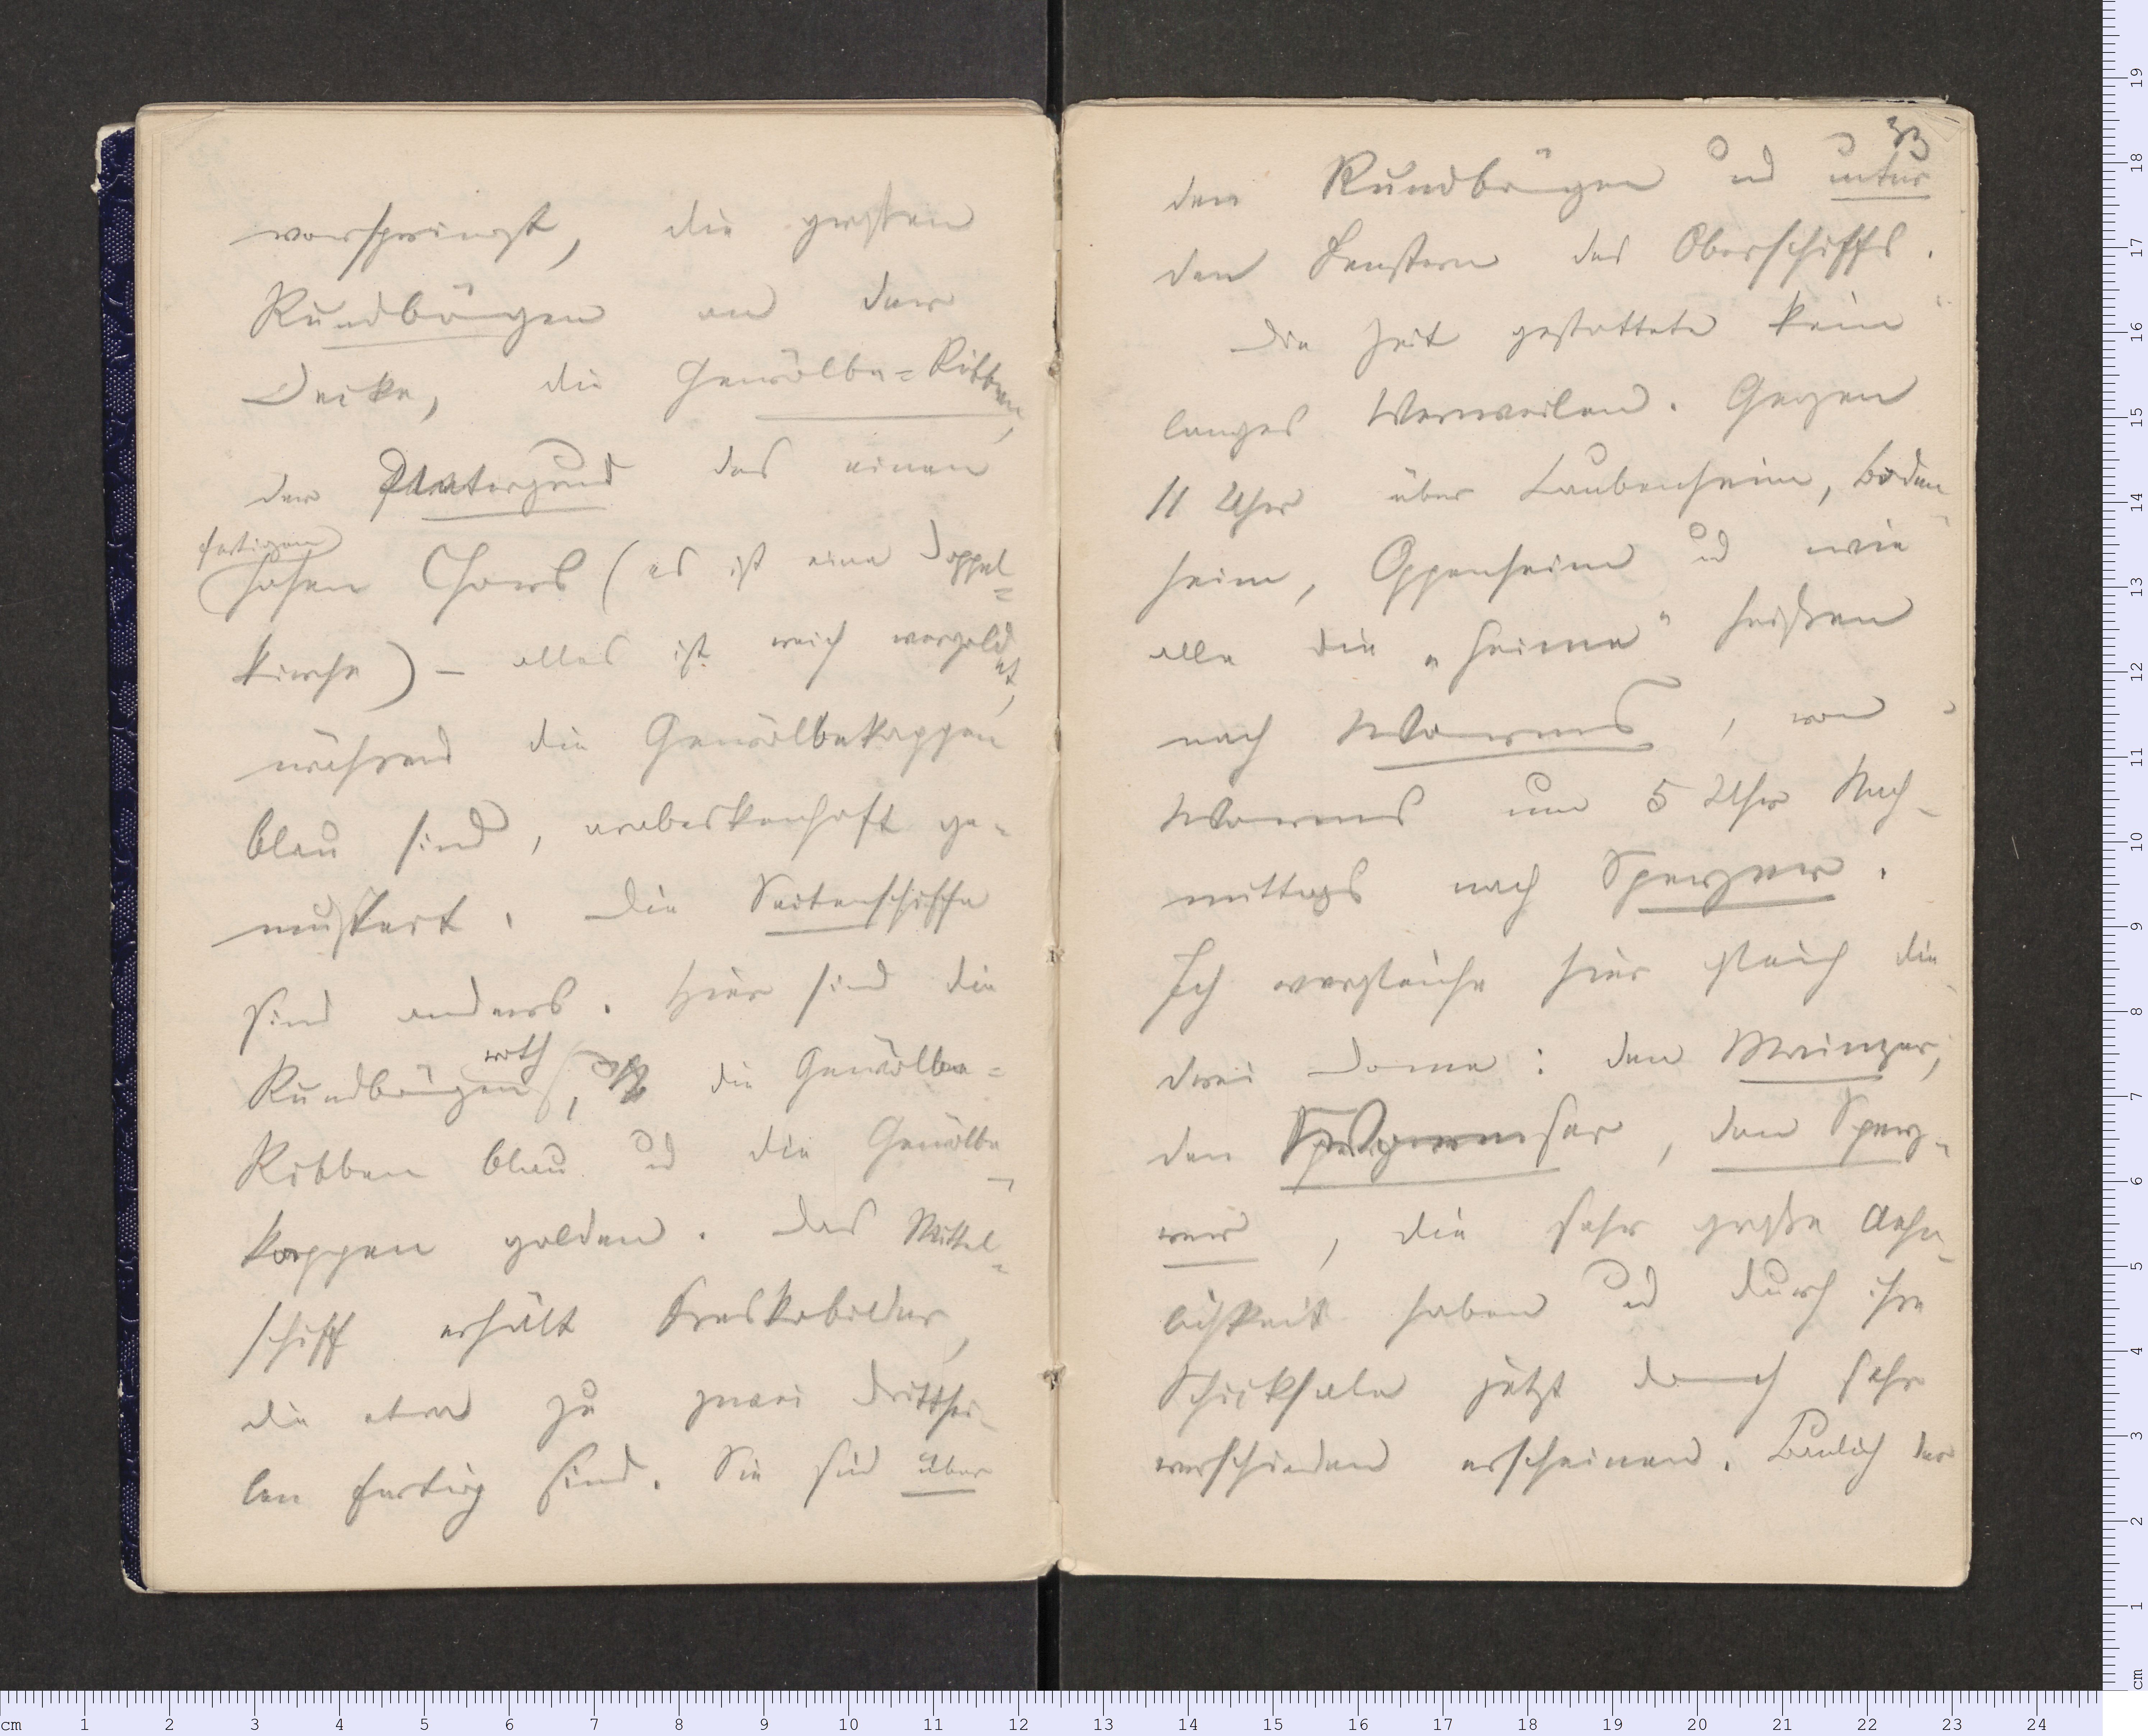 vorspringt, die großen
Rundbögen an der
Decke, die Gewölbe=Ribben,
der Hintergrund des einen
fertigen
hohen Chors (es ist eine Doppel=
kirche) – alles ist reich vergoldet,
während die Gewölbekappen
blau sind, arabeskenhaft ge-
mustert. Die Seitenschiffe
sind anders. Hier sind die
roth
Rundbögen, die Gewölbe=
Ribben blau und die Gewölbe-
kappen golden. Das Mittel=
schiff erhält Freskobilder,
die etwa zu zwei Dritthei-
len fertig sind. Sie sind über
33
den Rundbögen und unter
den Fenstern des Oberschiffs.
Die Zeit gestattete kein
langes Verweilen. Gegen
11 Uhr über Laubenheim, Boden-
heim, Oppenheim und wie
alle die „Heime" heißen
nach Worms, von
Worms um 5 Uhr Nach-
mittags nach Speyer.
Ich vergleiche hier gleich die
drei Dome: den Mainzer,
den Wormser, den Spey-
rer, die sehr große Aehn-
lichkeit haben und durch ihre
Schicksale jetzt doch sehr
verschieden erscheinen. Baulich der